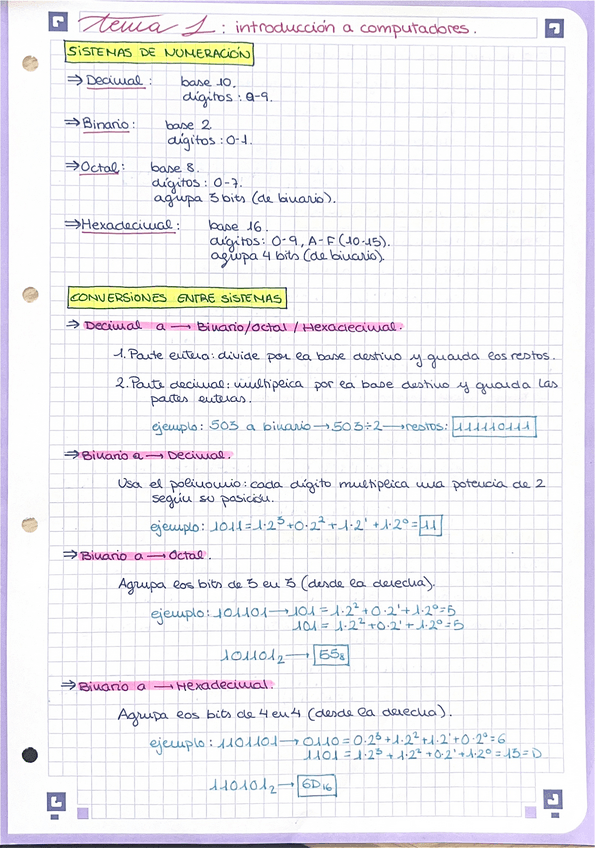 tema 1: introducción a computadores.
SISTEMAS DE NUMERACIÓN
⇒ Decimal: base 10.
dígitos: 0-9.
⇒ Binario: base 2
dígitos: 0-1.
⇒ Octal: base 8.
dígitos: 0-7.
agrupa 3 bits (de binario).
⇒ Hexadecimal: base 16.
dígitos: 0-9, A-F (10-15).
agrupa 4 bits (de binario).
CONVERSIONES ENTRE SISTEMAS
⇒ Decimal a → Binario/Octal/Hexadecimal.
1. Parte entera: divide por la base destino y guarda los restos.
2. Parte decimal: multiplica por la base destino y guarda las
partes enteras.
ejemplo: 503 a binario → 503÷2 → restos: 111110111
⇒ Binario a → Decimal.
Usa el polinomio: cada dígito multiplica una potencia de 2
según su posición.
ejemplo: 1011 = 1·2³+0·2²+1·2¹+1·2⁰ = 11
⇒ Binario a → Octal.
Agrupa los bits de 3 en 3 (desde la derecha).
ejemplo: 101101 → 101 = 1·2²+0·2¹+1·2⁰=5
101 = 1·2²+0·2¹+1·2⁰=5
101101₂ → 55₈
⇒ Binario a → Hexadecimal.
Agrupa los bits de 4 en 4 (desde la derecha).
ejemplo: 1101101 → 0110 = 0·2³+1·2²+1·2¹+0·2⁰=6
1101 = 1·2³+1·2²+0·2¹+1·2⁰=13=D
1101101₂ → 6D₁₆